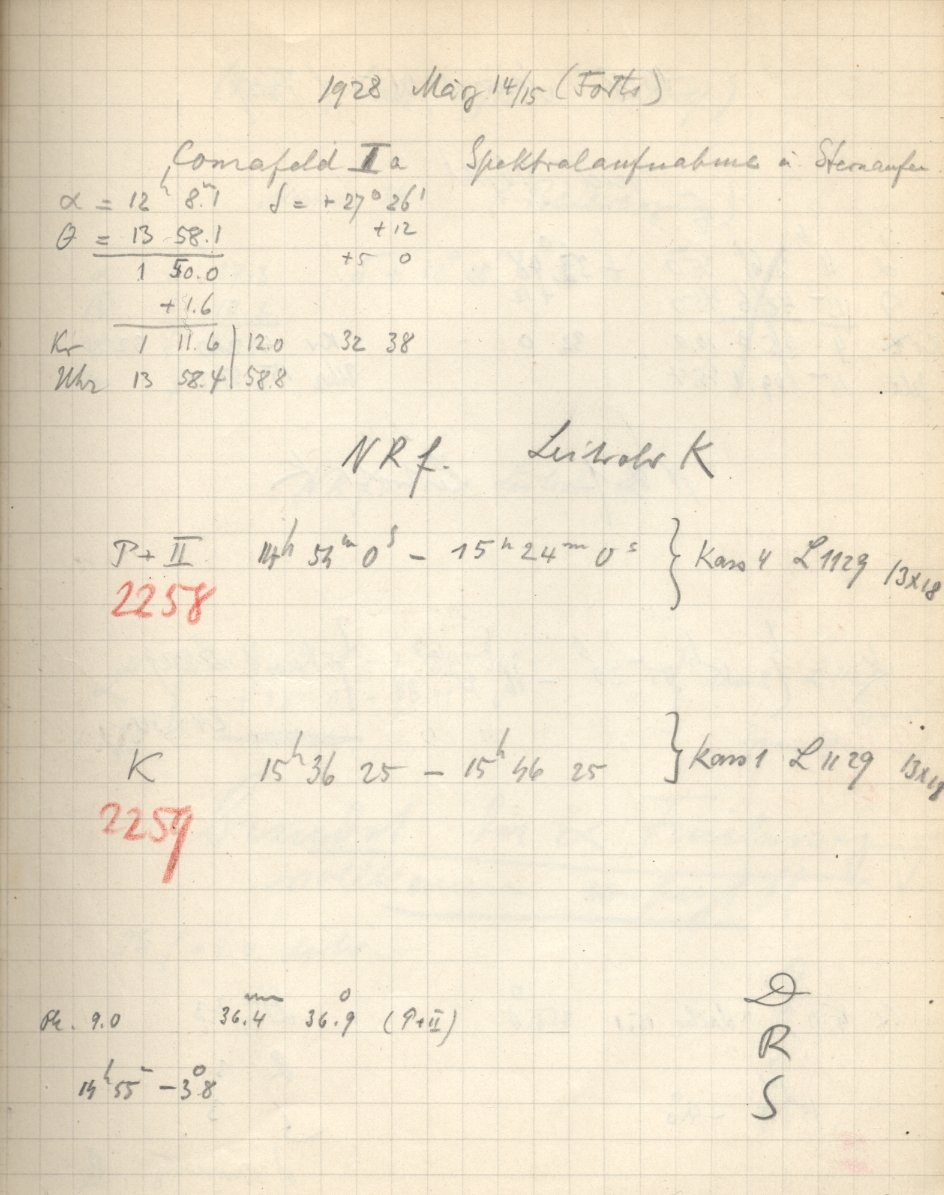 1928 März 14/15 (Forts)
Comafeld I a Spektralaufnahme u. Sternaufn.
α = 12ʰ 8.ᵐ1 δ = +27° 26'
θ = 13 58.1 +12
1 50.0 +5 0
+1.6
Kr 1 11.6 | 12.0 32 38
Uhr 13 58.4 | 58.8
NRf. Leitrohr K
P + II 14ʰ 54ᵐ 0ˢ – 15ʰ 24ᵐ 0ˢ } Kass 4 L 1129 13x18
2258
K 15ʰ 36 25 – 15ʰ 46 25 } Kass 1 L 1129 13x18
2259
9.0 36.4ᵐᵐ 36.9° (P+II)
14ʰ 55ᵐ –3.°8
D
R
S